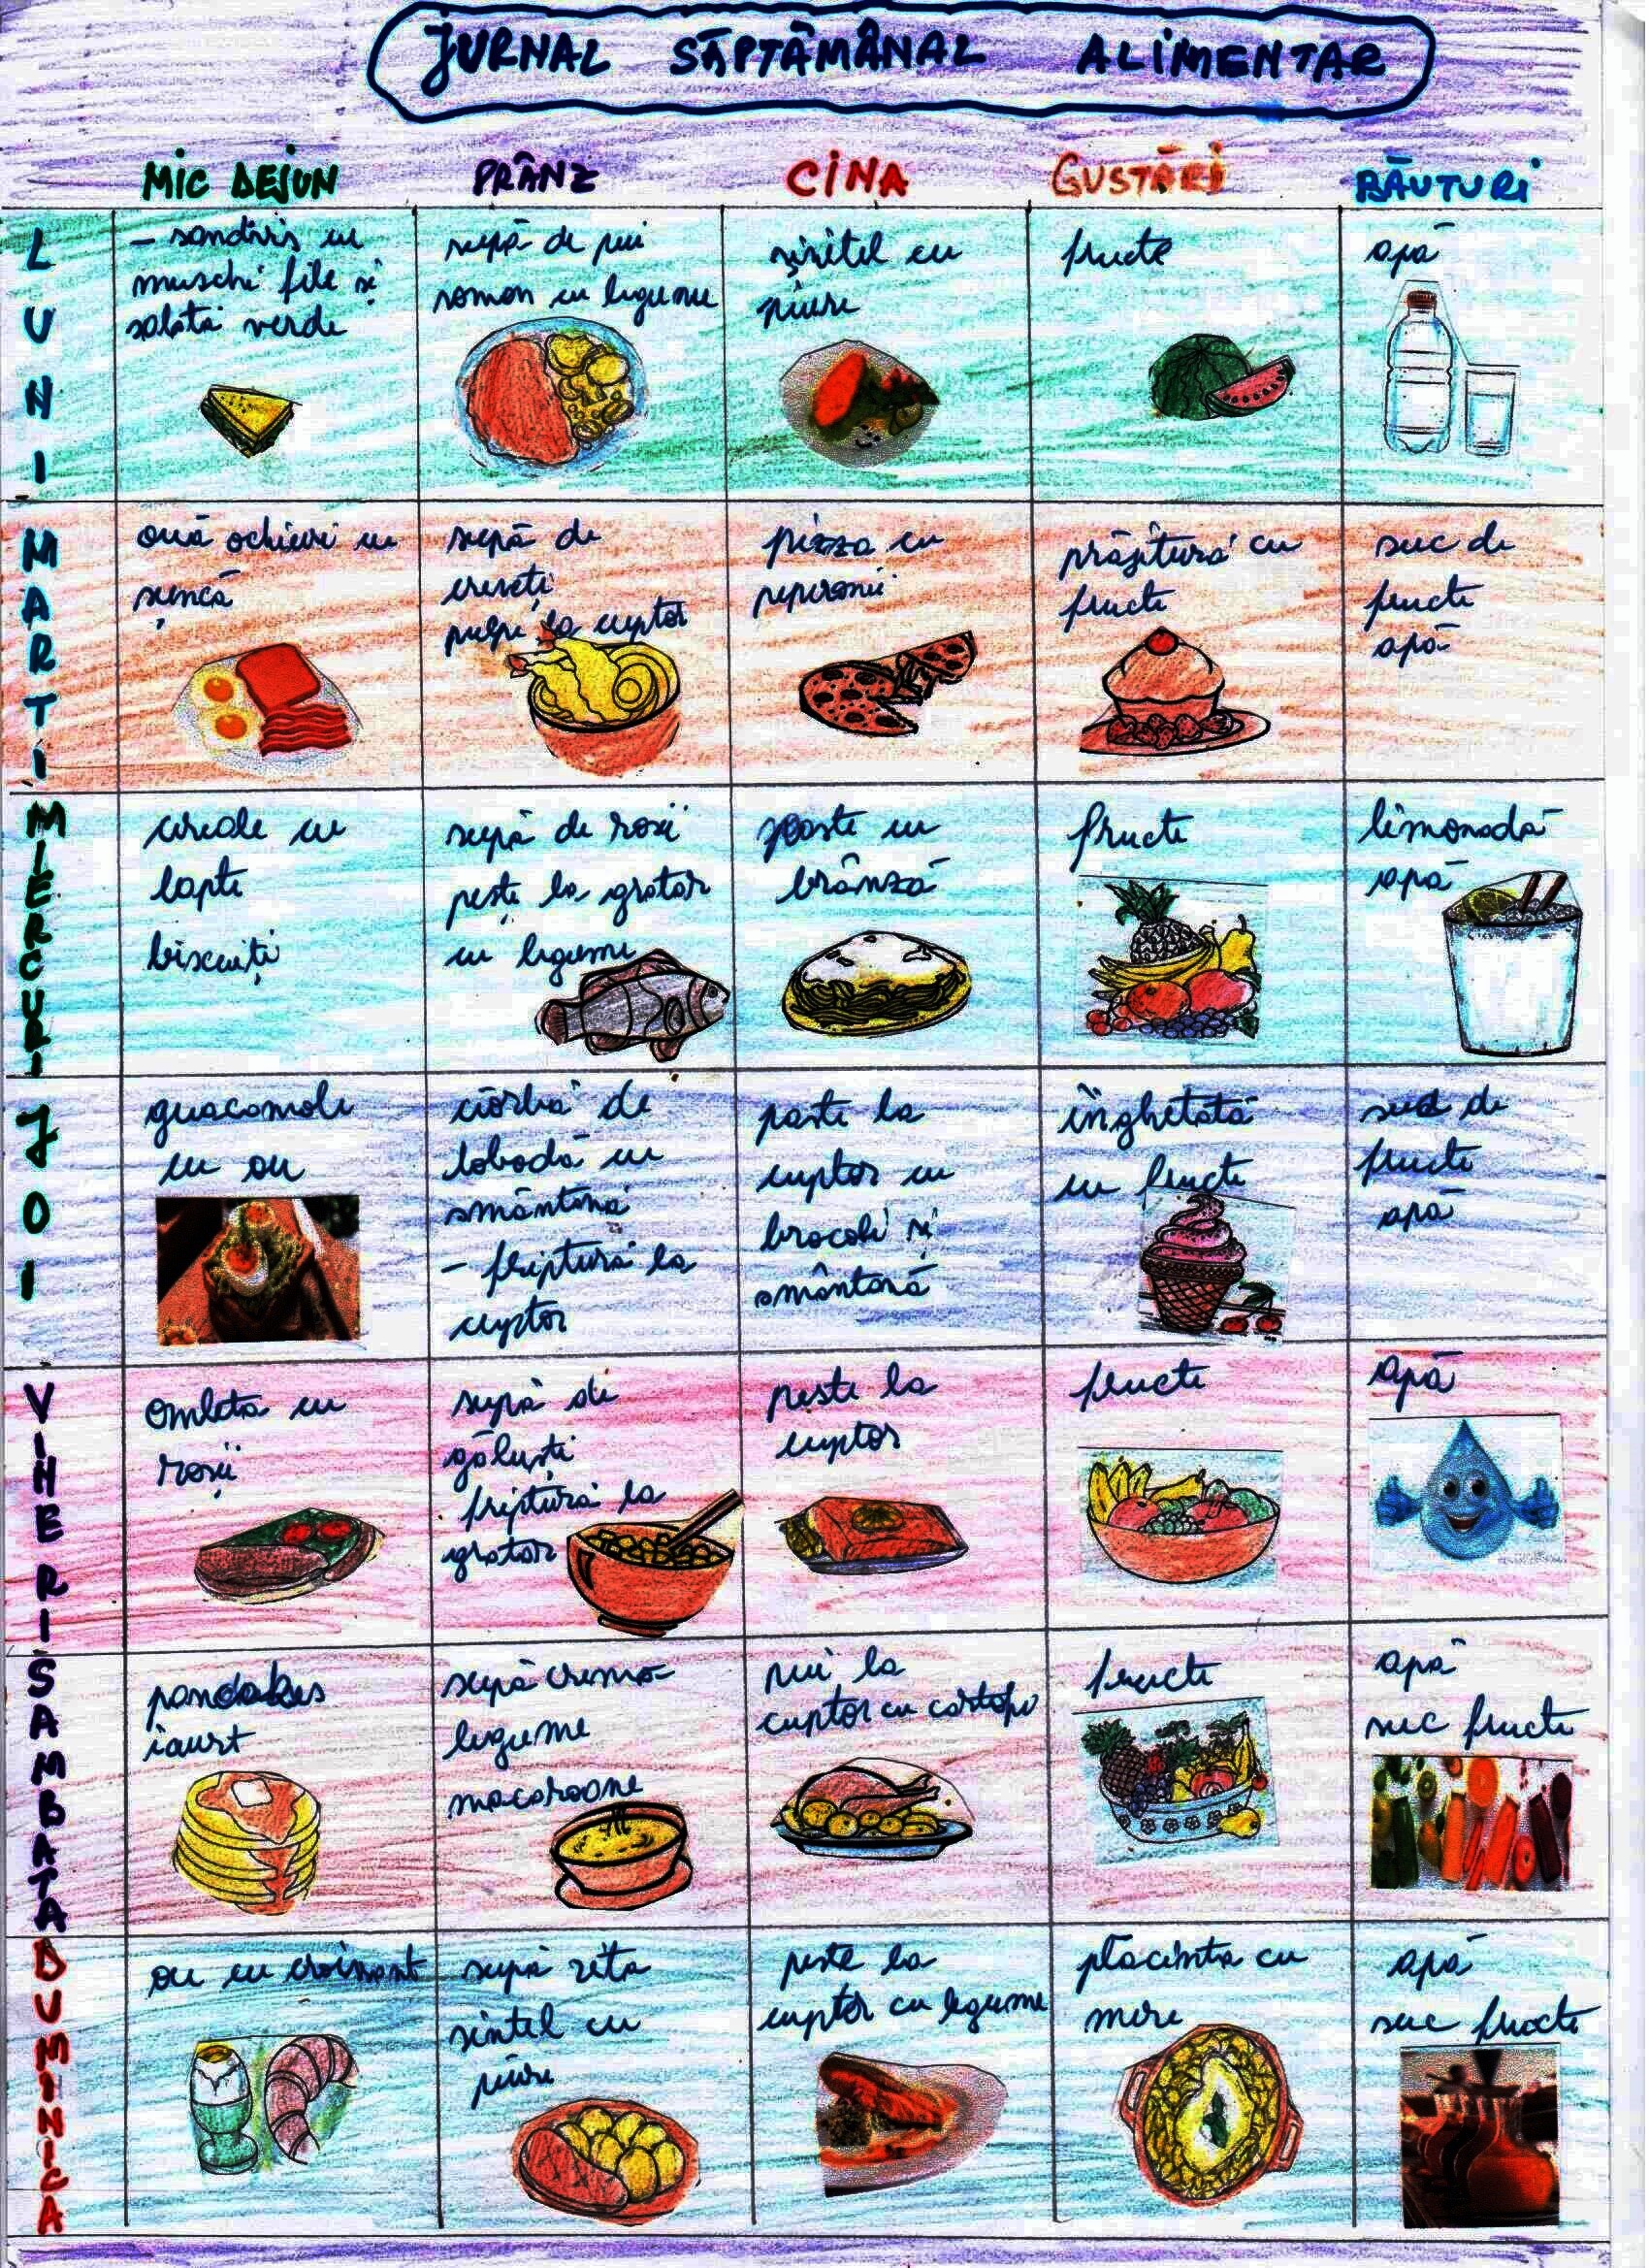 JURNAL SĂPTĂMÂNAL ALIMENTAR
MIC DEJUN PRÂNZ CINA GUSTĂRI BĂUTURI
LUNI
- sandvis cu
muschi file și
salata verde
supă de pui
somon cu legume
șnitel cu
piure
fructe
apă
MARTI
ouă ochiuri cu
șuncă
supă de
creveți
pulpe la cuptor
pizza cu
peperonii
prăjitură cu
fructe
suc de
fructe
apă
MIERCURI
cereale cu
lapte
biscuiți
supă de rosii
pește la gratar
cu legume
paste cu
brânză
fructe
limonadă
apă
JOI
guacamole
cu ou
ciorbă de
lobodă cu
smântână
- friptură la
cuptor
paste la
cuptor cu
brocoli si
smântână
înghetată
cu fructe
suc de
fructe
apă
VINERI
omletă cu
roșii
supă de
găluști
friptură la
gratar
peste la
cuptor
fructe
apă
SAMBATA
pancakes
iaurt
supă cremă
legume
macaroane
pui la
cuptor cu cartofi
fructe
apă
suc fructe
DUMINICA
ou cu croissant
supă
cu
piure
peste la
cuptor cu legume
placinta cu
mere
apă
suc fructe